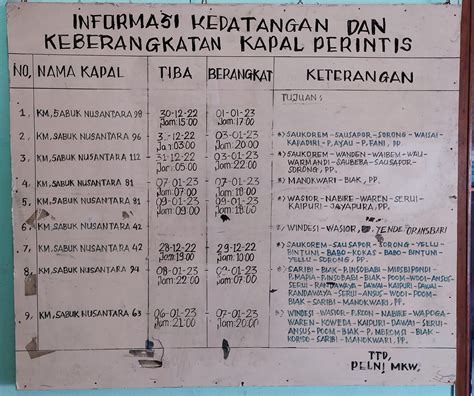 INFORMASI KEDATANGAN DAN
KEBERANGKATAN KAPAL PERINTIS
NO, NAMA KAPAL TIBA BERANGKAT KETERANGAN
TUJUAN :
1, KM, SABUK NUSANTARA 98 30-12-22 01-01-23
Jam: 15 00 Jam: 00.00
2, KM, SABUK NUSANTARA 96 3 -12-22 03-01-23 *) SAUKOREM-SAUSAPOR-SORONG-WAISAI-
Jam: 03.00 Jam: 20.00 KAPADIRI-P, AYAU-P. FANI, PP.
3, KM, SABUK NUSANTARA 112 31-12-22 03-01-23 *) SAUKOREM-WANDEN-WAIBEM-WAU-
Jam: 02.00 Jam: 05.00 WARMANDI-SAUBEBA-SAUSAPOR-
SORONG, PP.
4, KM, SABUK NUSANTARA 81 07-01-23 07-01-23 *) MANOKWARI-BIAK, PP.
Jam: 07.00 Jam: 19.00
5, KM, SABUK NUSANTARA 81 09-01-23 09-01-23 *) WASIOR-NABIRE-WAREN-SERUI-
Jam: 09.00 Jam: 18.00 KAIPURI-JAYAPURA, PP.
6, KM, SABUK NUSANTARA 42 *) WINDESI-WASIOR,
7, KM, SABUK NUSANTARA 42 28-12-22 29-12-22 *) SAUKOREM-SAUSAPOR-SORONG-YELLU-
Jam: 19.00 Jam: 10.00 BINTUNI-BABO-KOKAS-BABO-BINTUNI-
YELLU-SORONG, PP.
8, KM, SABUK NUSANTARA 94 08-01-23 09-01-23 *) SARIBI-BIAK-
Jam: 23.00 Jam: 22.00 P. MAPIA- -BIAK-POOM-WOOI-ANSUS-
SERUI-RANDAWAYA-DAWAI-KAIPURI-DAWAI-
RANDAWAYA-SERUI-ANSUS-WOOI-POOM-
BIAK-SARIBI-MANOKWARI, PP.
9, KM, SABUK NUSANTARA 63 06-01-23 07-01-23 *) WINDESI-WASIOR-P. ROON-NABIRE-WAPOGA-
Jam: 21.00 Jam: 20.00 WAREN-KOWEDA-KAIPURI-DAWAI-SERUI-
ANSUS-POOM-BIAK-P. -BIAK-
KORIDO-SARIBI-MANOKWARI, PP.
TTD,
PELNI MKW.